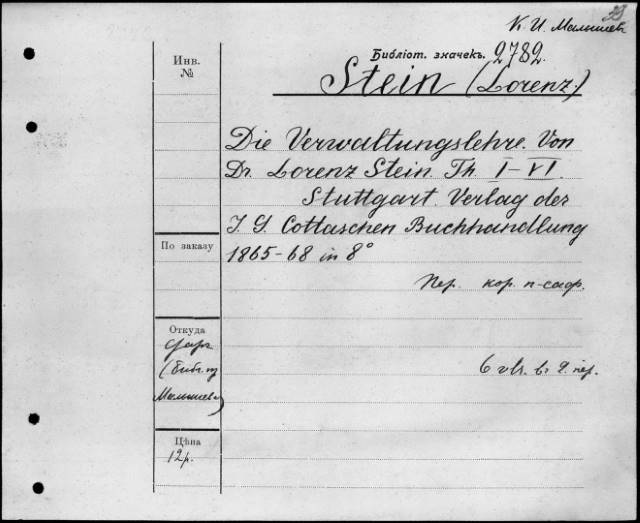 К. И. Малышев
Библіот. значекъ. 2782.
Инв.
№
Stein (Lorenz.)
Die Verwaltungslehre. Von
Dr. Lorenz Stein. Th. I-VI.
Stuttgart. Verlag der
J. G. Cottaschen Buchhandlung
1865-68 in 8°
По заказу
Пер. кор. п-саф.
Откуда
(библ.
Малышева)
6 въ 2 пер.
Цѣна
12 р.